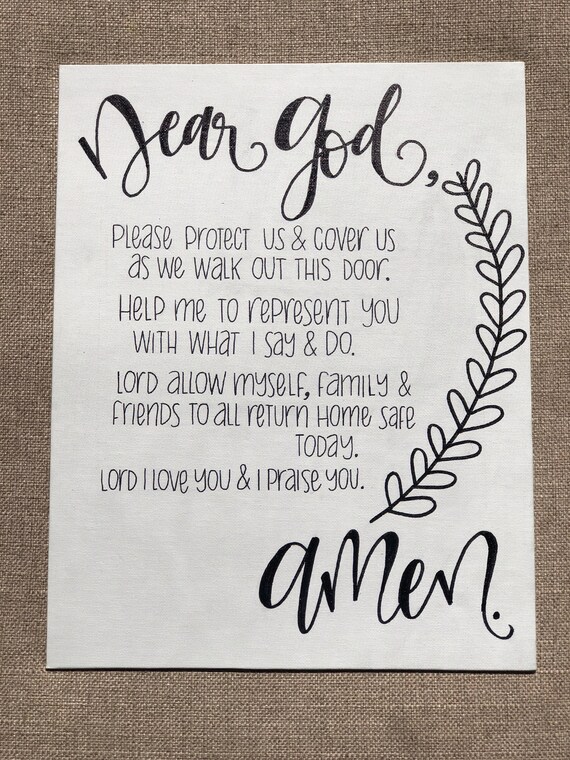 Dear God,
Please protect us & cover us
as we walk out this door.
Help me to represent you
with what I say & do.
Lord allow myself, family &
friends to all return home safe
today.
Lord I love you & I praise you.
amen.